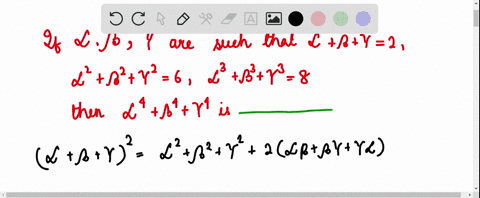 If α, β, γ are such that α+β+γ=2,
α²+β²+γ²=6, α³+β³+γ³=8
then α⁴+β⁴+γ⁴ is ________
(α+β+γ)² = α²+β²+γ²+2(αβ+βγ+γα)